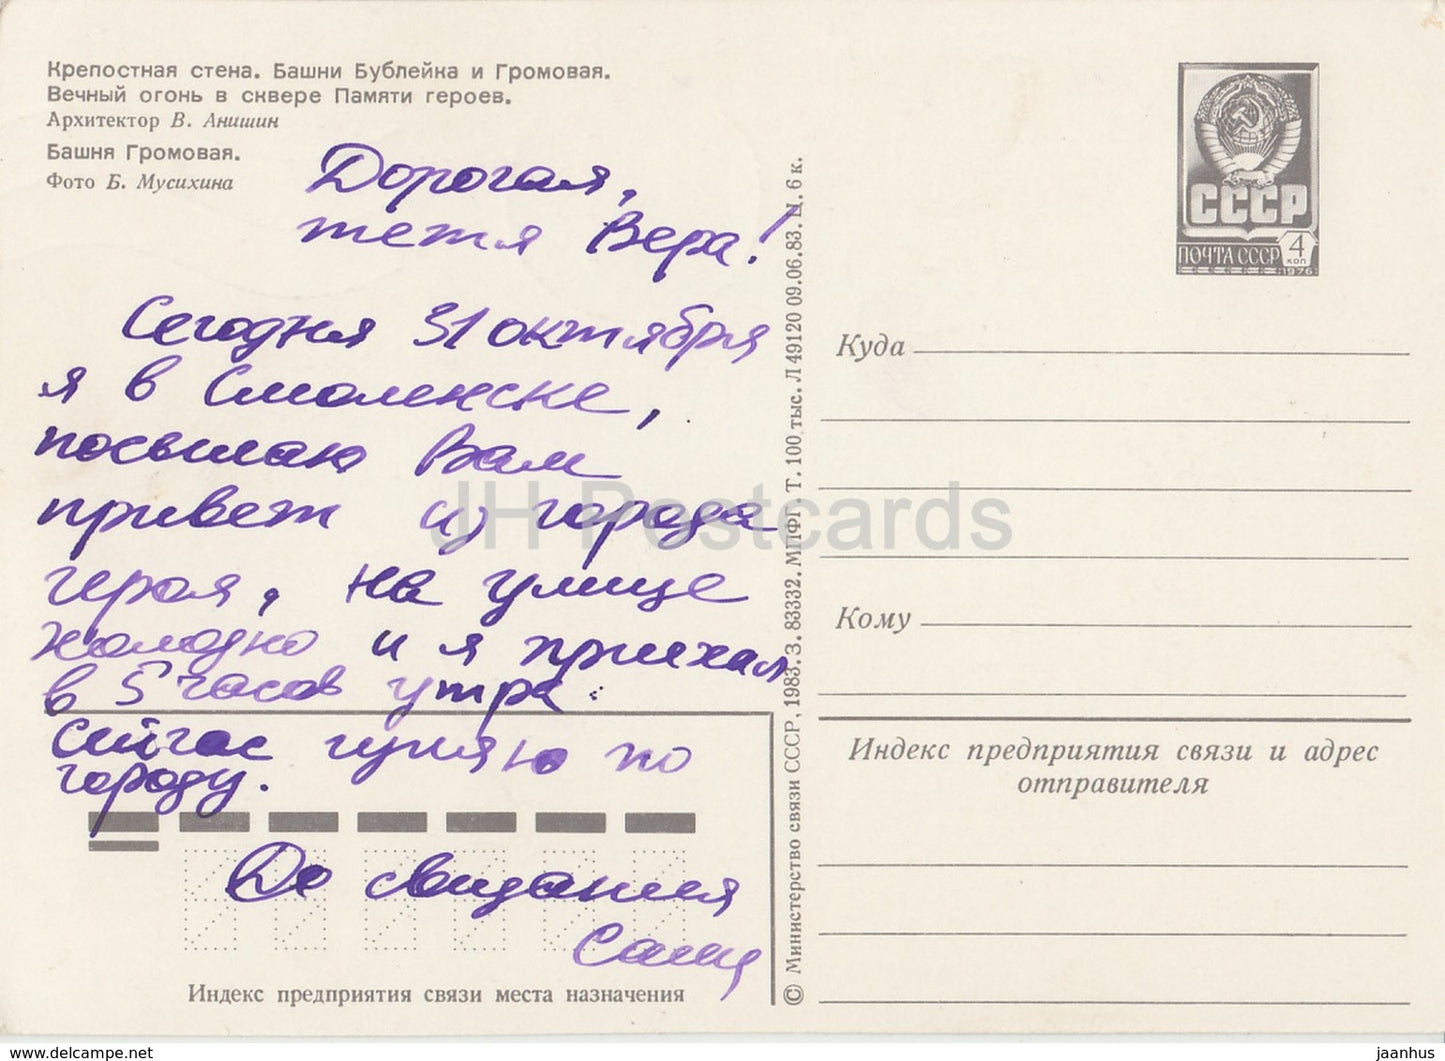 Крепостная стена. Башни Бублейка и Громовая.
Вечный огонь в сквере Памяти героев.
Архитектор В. Анишин
Башня Громовая.
Фото Б. Мусихина
Дорогая,
тетя Вера!
Сегодня 31 октября
я в Смоленске,
посылаю Вам
привет из города
героя, на улице
холодно и я приехал
в 5 часов утра.
Сейчас гуляю по
городу.
До свидания
Индекс предприятия связи места назначения
© Министерство связи СССР, 1983. З. 83332. МПФГ. Т. 100 тыс. Л 49120 09.06.83. Ц. 6 к.
СССР
ПОЧТА СССР 4 коп
1976
Куда
Кому
Индекс предприятия связи и адрес
отправителя
JH Postcards
www.delcampe.net
jaanhus